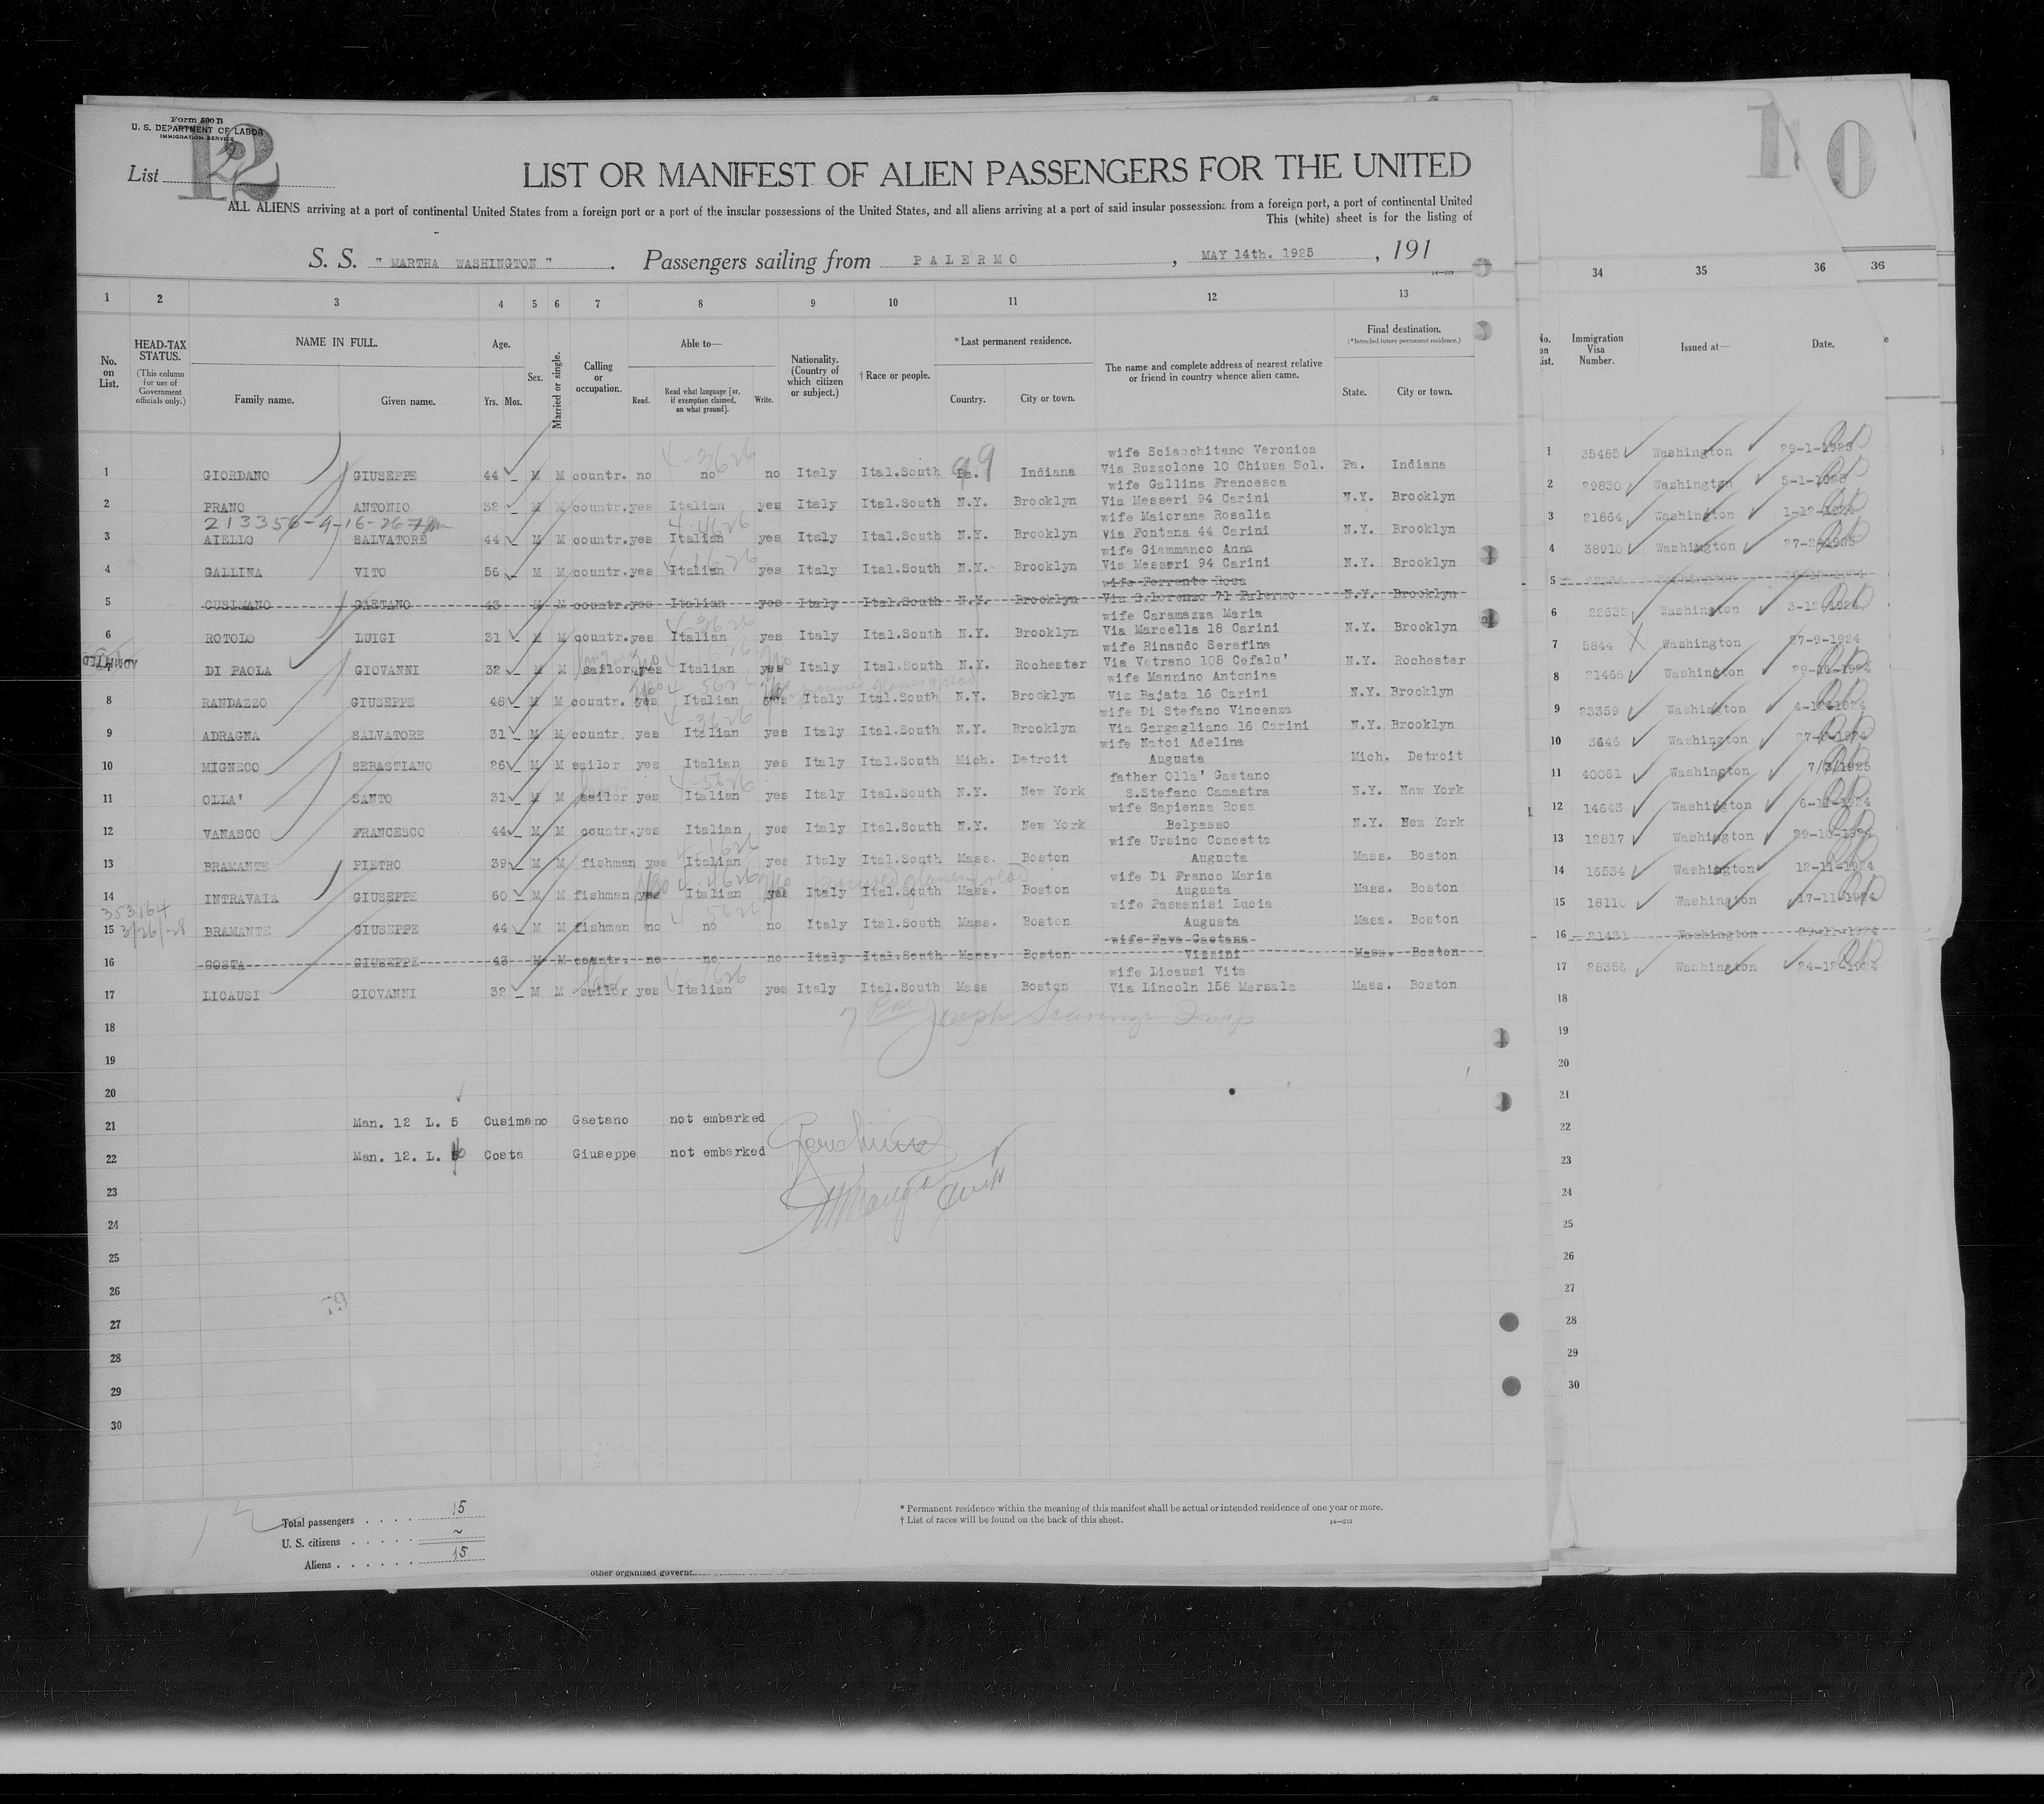 Form 500 B
U. S. DEPARTMENT OF LABOR
IMMIGRATION SERVICE
List 12
10
LIST OR MANIFEST OF ALIEN PASSENGERS FOR THE UNITED
ALL ALIENS arriving at a port of continental United States from a foreign port or a port of the insular possessions of the United States, and all aliens arriving at a port of said insular possessions from a foreign port, a port of continental United
This (white) sheet is for the listing of
S. S. " MARTHA WASHINGTON " . Passengers sailing from PALERMO , MAY 14th. 1925 , 191
14—213
1 2 3 4 5 6 7 8 9 10 11 12 13 34 35 36 36
No. on List. HEAD-TAX STATUS. (This column for use of Government officials only.) NAME IN FULL. Family name. Given name. Age. Yrs. Mos. Sex. Married or single. Calling or occupation. Able to— Read. Read what language [or, if exemption claimed, on what ground]. Write. Nationality. (Country of which citizen or subject.) † Race or people. *Last permanent residence. Country. City or town. The name and complete address of nearest relative or friend in country whence alien came. Final destination. (*Intended future permanent residence.) State. City or town. No. on List. Immigration Visa Number. Issued at— Date.
wife Sciacchitano Veronica
1 GIORDANO GIUSEPPE 44 M M countr. no no no Italy Ital.South Pa. Indiana Via Ruzzolone 10 Chiusa Scl. Pa. Indiana 1 35485 Washington 29-1-1925
wife Gallina Francesca
2 PRANO ANTONIO 32 M M countr. yes Italian yes Italy Ital.South N.Y. Brooklyn Via Messeri 94 Carini N.Y. Brooklyn 2 29830 Washington 5-1-1925
213356-9-16-26
wife Maiorana Rosalia
3 AIELLO SALVATORE 44 M M countr. yes Italian yes Italy Ital.South N.Y. Brooklyn Via Fontana 44 Carini N.Y. Brooklyn 3 21864 Washington 1-12-1924
wife Giammanco Anna
4 GALLINA VITO 56 M M countr. yes Italian yes Italy Ital.South N.Y. Brooklyn Via Messeri 94 Carini N.Y. Brooklyn 4 38910 Washington
wife Ferrante Rosa
5 CUSIMANO GAETANO 43 M M countr. yes Italian yes Italy Ital.South N.Y. Brooklyn Via S.Lorenzo 71 Palermo N.Y. Brooklyn 5 Washington
wife Caramazza Maria
6 ROTOLO LUIGI 31 M M countr. yes Italian yes Italy Ital.South N.Y. Brooklyn Via Marcella 18 Carini N.Y. Brooklyn 6 22632 Washington 3-12-1924
wife Rinaudo Serafina
ADMITTED DI PAOLA GIOVANNI 32 M M sailor yes Italian yes Italy Ital.South N.Y. Rochester Via Vetrano 108 Cefalu' N.Y. Rochester 7 5844 Washington 27-9-1924
wife Mannino Antonina
8 RANDAZZO GIUSEPPE 48 M M countr. yes Italian yes Italy Ital.South N.Y. Brooklyn Via Bajata 16 Carini N.Y. Brooklyn 8 21466 Washington 29-11-1924
wife Di Stefano Vincenza
9 ADRAGNA SALVATORE 31 M M countr. yes Italian yes Italy Ital.South N.Y. Brooklyn Via Gargagliano 16 Carini N.Y. Brooklyn 9 23359 Washington 4-12-1924
wife Natoi Adelina
10 MIGNECO SEBASTIANO 26 M M sailor yes Italian yes Italy Ital.South Mich. Detroit Augusta Mich. Detroit 10 3646 Washington
father Olla' Gaetano
11 OLLA' SANTO 31 M M sailor yes Italian yes Italy Ital.South N.Y. New York S.Stefano Camastra N.Y. New York 11 40061 Washington 7/3/1925
wife Sapienza Rosa
12 VANASCO FRANCESCO 44 M M countr. yes Italian yes Italy Ital.South N.Y. New York Belpasso N.Y. New York 12 14643 Washington 6-11-1924
wife Ursino Concetta
13 BRAMANTE PIETRO 39 M M fishman yes Italian yes Italy Ital.South Mass. Boston Augusta Mass. Boston 13 12817 Washington 29-10-1924
wife Di Franco Maria
14 INTRAVAIA GIUSEPPE 60 M M fishman yes Italian yes Italy Ital.South Mass. Boston Augusta Mass. Boston 14 16534 Washington 12-11-1924
353164
3/26/28
wife Passanisi Lucia
15 BRAMANTE GIUSEPPE 44 M M fishman no no no Italy Ital.South Mass. Boston Augusta Mass. Boston 15 18110 Washington 17-11-1924
wife Fava Gaetana
16 COSTA GIUSEPPE 43 M M countr. no no no Italy Ital.South Mass. Boston Vizzini Mass. Boston 16 21431 Washington 29-11-1924
wife Licausi Vita
17 LICAUSI GIOVANNI 32 M M sailor yes Italian yes Italy Ital.South Mass Boston Via Lincoln 158 Marsala Mass. Boston 17 28356 Washington 24-12-1924
18 18
19 19
20 20
21 Man. 12 L. 5 Cusimano Gaetano not embarked 21
22 Man. 12. L. 16 Costa Giuseppe not embarked 22
23 23
24 24
25 25
26 26
27 27
28 28
29 29
30 30
Total passengers 15
U. S. citizens ~
Aliens 15
* Permanent residence within the meaning of this manifest shall be actual or intended residence of one year or more.
† List of races will be found on the back of this sheet.
14—213
other organized govern